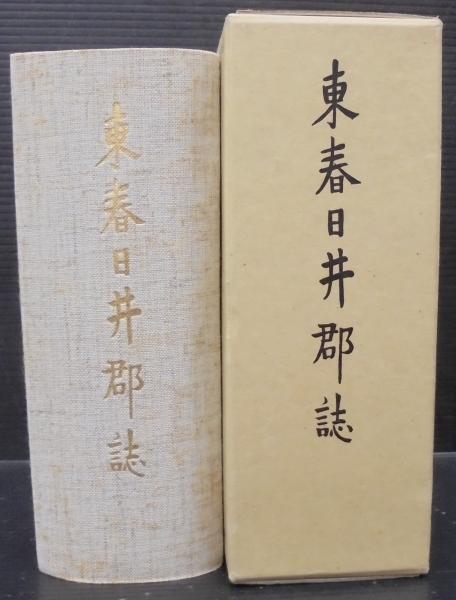 東春日井郡誌
東春日井郡誌